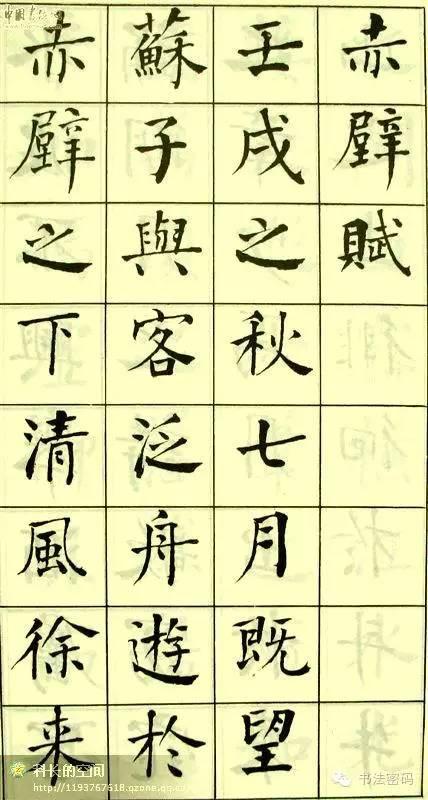 赤壁賦
壬戌之秋七月既望
蘇子與客泛舟遊於
赤壁之下清風徐来
科长的空间
http://1193767618.qzone.qq.com
书法密码